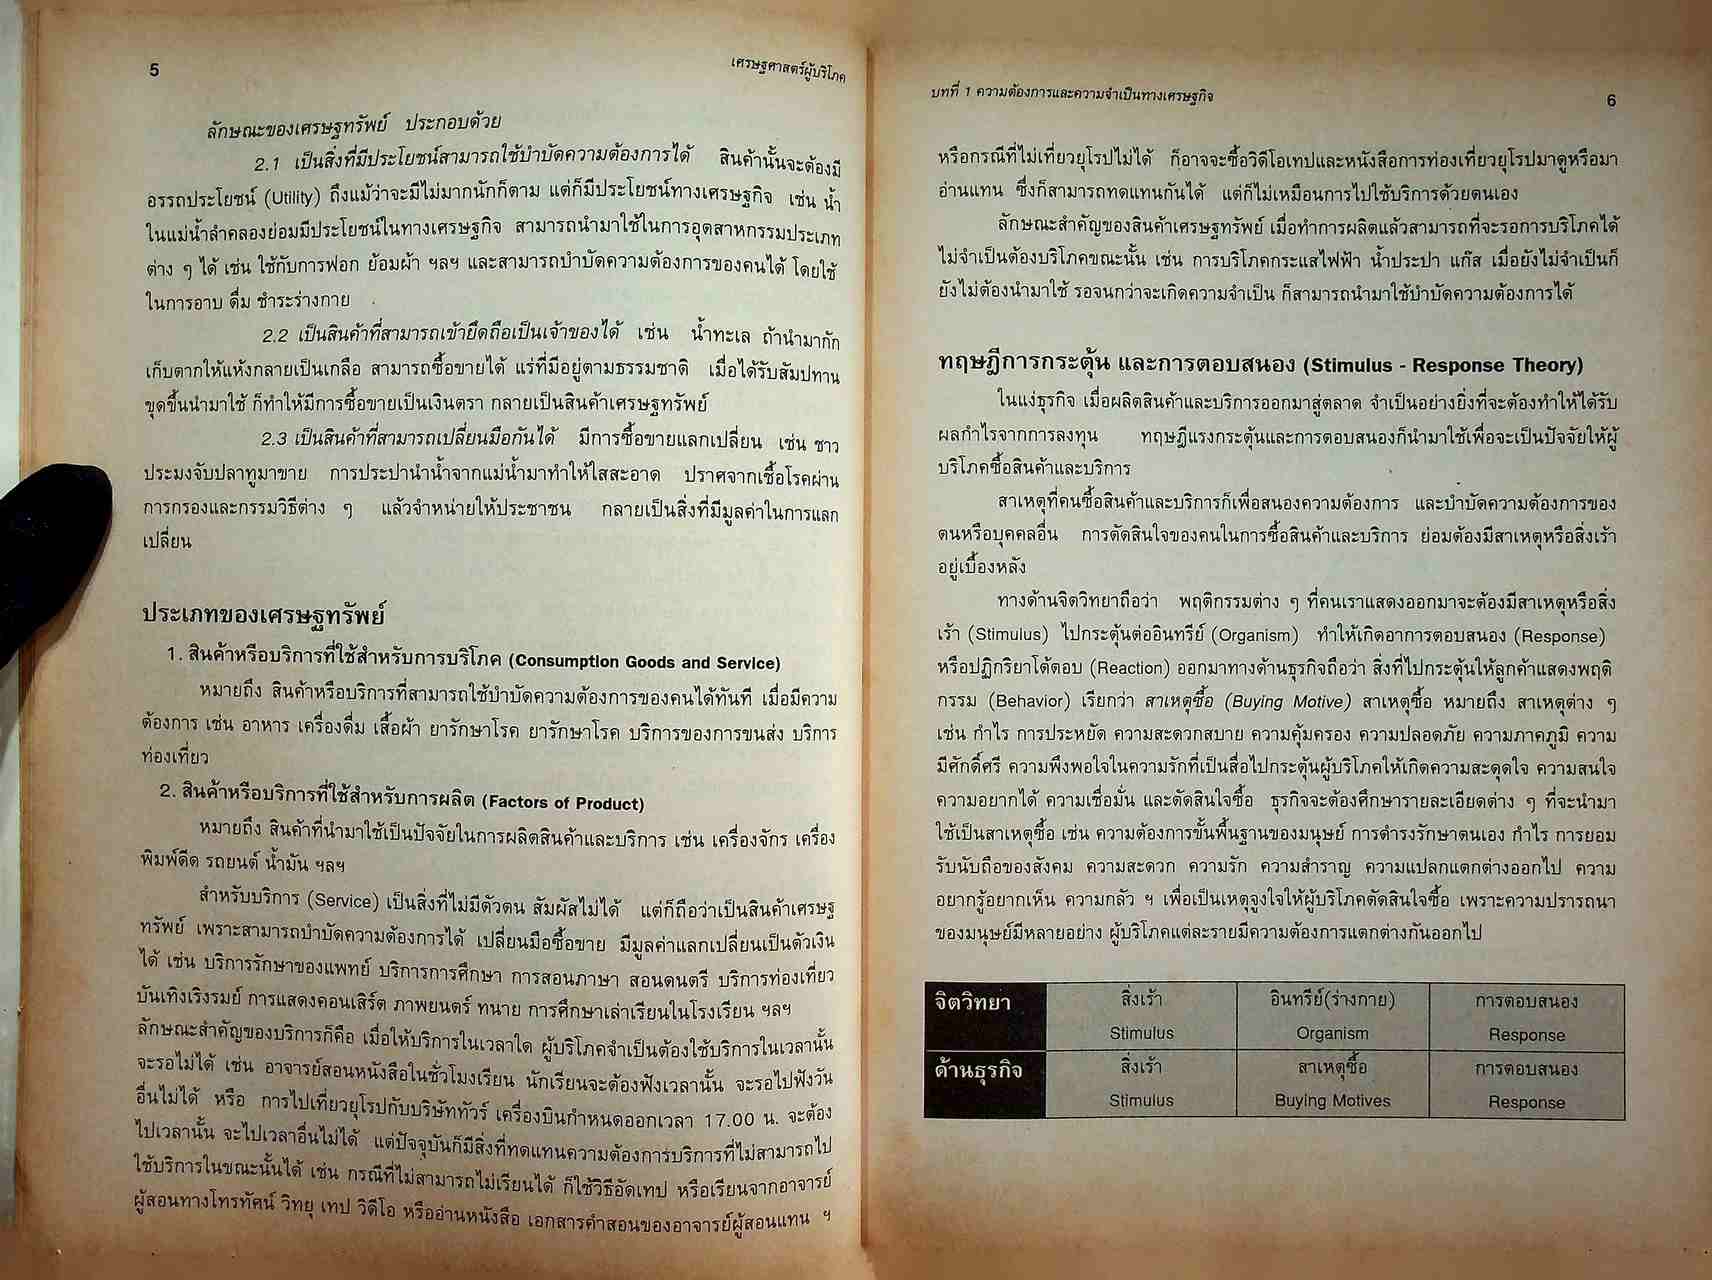 5
เศรษฐศาสตร์ผู้บริโภค
ลักษณะของเศรษฐทรัพย์ ประกอบด้วย
2.1 เป็นสิ่งที่มีประโยชน์สามารถใช้บำบัดความต้องการได้ สินค้านั้นจะต้องมี
อรรถประโยชน์ (Utility) ถึงแม้ว่าจะมีไม่มากนักก็ตาม แต่ก็มีประโยชน์ทางเศรษฐกิจ เช่น น้ำ
ในแม่น้ำลำคลองย่อมมีประโยชน์ในทางเศรษฐกิจ สามารถนำมาใช้ในการอุตสาหกรรมประเภท
ต่าง ๆ ได้ เช่น ใช้กับการฟอก ย้อมผ้า ฯลฯ และสามารถบำบัดความต้องการของคนได้ โดยใช้
ในการอาบ ดื่ม ชำระร่างกาย
2.2 เป็นสินค้าที่สามารถเข้ายึดถือเป็นเจ้าของได้ เช่น น้ำทะเล ถ้านำมากัก
เก็บตากให้แห้งกลายเป็นเกลือ สามารถซื้อขายได้ แร่ที่มีอยู่ตามธรรมชาติ เมื่อได้รับสัมปทาน
ขุดขึ้นนำมาใช้ ก็ทำให้มีการซื้อขายเป็นเงินตรา กลายเป็นสินค้าเศรษฐทรัพย์
2.3 เป็นสินค้าที่สามารถเปลี่ยนมือกันได้ มีการซื้อขายแลกเปลี่ยน เช่น ชาว
ประมงจับปลาทูมาขาย การประปานำน้ำจากแม่น้ำมาทำให้ใสสะอาด ปราศจากเชื้อโรคผ่าน
การกรองและกรรมวิธีต่าง ๆ แล้วจำหน่ายให้ประชาชน กลายเป็นสิ่งที่มีมูลค่าในการแลก
เปลี่ยน
ประเภทของเศรษฐทรัพย์
1. สินค้าหรือบริการที่ใช้สำหรับการบริโภค (Consumption Goods and Service)
หมายถึง สินค้าหรือบริการที่สามารถใช้บำบัดความต้องการของคนได้ทันที เมื่อมีความ
ต้องการ เช่น อาหาร เครื่องดื่ม เสื้อผ้า ยารักษาโรค ยารักษาโรค บริการของการขนส่ง บริการ
ท่องเที่ยว
2. สินค้าหรือบริการที่ใช้สำหรับการผลิต (Factors of Product)
หมายถึง สินค้าที่นำมาใช้เป็นปัจจัยในการผลิตสินค้าและบริการ เช่น เครื่องจักร เครื่อง
พิมพ์ดีด รถยนต์ น้ำมัน ฯลฯ
สำหรับบริการ (Service) เป็นสิ่งที่ไม่มีตัวตน สัมผัสไม่ได้ แต่ก็ถือว่าเป็นสินค้าเศรษฐ
ทรัพย์ เพราะสามารถบำบัดความต้องการได้ เปลี่ยนมือซื้อขาย มีมูลค่าแลกเปลี่ยนเป็นตัวเงิน
ได้ เช่น บริการรักษาของแพทย์ บริการการศึกษา การสอนภาษา สอนดนตรี บริการท่องเที่ยว
บันเทิงเริงรมย์ การแสดงคอนเสิร์ต ภาพยนตร์ ทนาย การศึกษาเล่าเรียนในโรงเรียน ฯลฯ
ลักษณะสำคัญของบริการก็คือ เมื่อให้บริการในเวลาใด ผู้บริโภคจำเป็นต้องใช้บริการในเวลานั้น
จะรอไม่ได้ เช่น อาจารย์สอนหนังสือในชั่วโมงเรียน นักเรียนจะต้องฟังเวลานั้น จะรอไปฟังวัน
อื่นไม่ได้ หรือ การไปเที่ยวยุโรปกับบริษัททัวร์ เครื่องบินกำหนดออกเวลา 17.00 น. จะต้อง
ไปเวลานั้น จะไปเวลาอื่นไม่ได้ แต่ปัจจุบันก็มีสิ่งที่ทดแทนความต้องการบริการที่ไม่สามารถไป
ใช้บริการในขณะนั้นได้ เช่น กรณีที่ไม่สามารถไม่เรียนได้ ก็ใช้วิธีอัดเทป หรือเรียนจากอาจารย์
ผู้สอนทางโทรทัศน์ วิทยุ เทป วิดีโอ หรืออ่านหนังสือ เอกสารคำสอนของอาจารย์ผู้สอนแทน ฯ
บทที่ 1 ความต้องการและความจำเป็นทางเศรษฐกิจ
6
หรือกรณีที่ไม่เที่ยวยุโรปไม่ได้ ก็อาจจะซื้อวิดีโอเทปและหนังสือการท่องเที่ยวยุโรปมาดูหรือมา
อ่านแทน ซึ่งก็สามารถทดแทนกันได้ แต่ก็ไม่เหมือนการไปใช้บริการด้วยตนเอง
ลักษณะสำคัญของสินค้าเศรษฐทรัพย์ เมื่อทำการผลิตแล้วสามารถที่จะรอการบริโภคได้
ไม่จำเป็นต้องบริโภคขณะนั้น เช่น การบริโภคกระแสไฟฟ้า น้ำประปา แก๊ส เมื่อยังไม่จำเป็นก็
ยังไม่ต้องนำมาใช้ รอจนกว่าจะเกิดความจำเป็น ก็สามารถนำมาใช้บำบัดความต้องการได้
ทฤษฎีการกระตุ้น และการตอบสนอง (Stimulus - Response Theory)
ในแง่ธุรกิจ เมื่อผลิตสินค้าและบริการออกมาสู่ตลาด จำเป็นอย่างยิ่งที่จะต้องทำให้ได้รับ
ผลกำไรจากการลงทุน ทฤษฎีแรงกระตุ้นและการตอบสนองก็นำมาใช้เพื่อจะเป็นปัจจัยให้ผู้
บริโภคซื้อสินค้าและบริการ
สาเหตุที่คนซื้อสินค้าและบริการก็เพื่อสนองความต้องการ และบำบัดความต้องการของ
ตนหรือบุคคลอื่น การตัดสินใจของคนในการซื้อสินค้าและบริการ ย่อมต้องมีสาเหตุหรือสิ่งเร้า
อยู่เบื้องหลัง
ทางด้านจิตวิทยาถือว่า พฤติกรรมต่าง ๆ ที่คนเราแสดงออกมาจะต้องมีสาเหตุหรือสิ่ง
เร้า (Stimulus) ไปกระตุ้นต่ออินทรีย์ (Organism) ทำให้เกิดอาการตอบสนอง (Response)
หรือปฏิกริยาโต้ตอบ (Reaction) ออกมาทางด้านธุรกิจถือว่า สิ่งที่ไปกระตุ้นให้ลูกค้าแสดงพฤติ
กรรม (Behavior) เรียกว่า สาเหตุซื้อ (Buying Motive) สาเหตุซื้อ หมายถึง สาเหตุต่าง ๆ
เช่น กำไร การประหยัด ความสะดวกสบาย ความคุ้มครอง ความปลอดภัย ความภาคภูมิ ความ
มีศักดิ์ศรี ความพึงพอใจในความรักที่เป็นสื่อไปกระตุ้นผู้บริโภคให้เกิดความสะดุดใจ ความสนใจ
ความอยากได้ ความเชื่อมั่น และตัดสินใจซื้อ ธุรกิจจะต้องศึกษารายละเอียดต่าง ๆ ที่จะนำมา
ใช้เป็นสาเหตุซื้อ เช่น ความต้องการขั้นพื้นฐานของมนุษย์ การดำรงรักษาตนเอง กำไร การยอม
รับนับถือของสังคม ความสะดวก ความรัก ความสำราญ ความแปลกแตกต่างออกไป ความ
อยากรู้อยากเห็น ความกลัว ฯ เพื่อเป็นเหตุจูงใจให้ผู้บริโภคตัดสินใจซื้อ เพราะความปรารถนา
ของมนุษย์มีหลายอย่าง ผู้บริโภคแต่ละรายมีความต้องการแตกต่างกันออกไป
จิตวิทยา สิ่งเร้า อินทรีย์(ร่างกาย) การตอบสนอง
Stimulus Organism Response
ด้านธุรกิจ สิ่งเร้า สาเหตุซื้อ การตอบสนอง
Stimulus Buying Motives Response